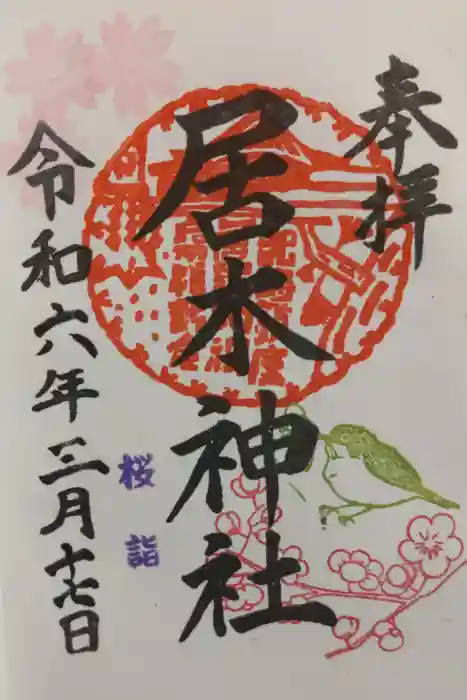 奉拝
居木神社
桜詣
令和六年三月十七日